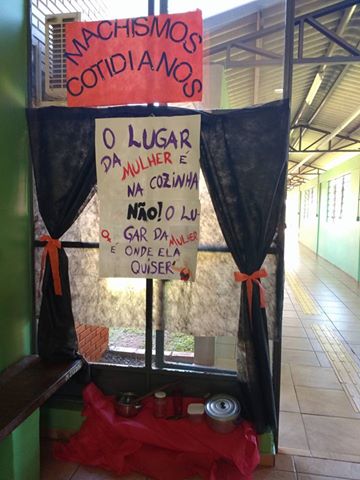 MACHISMOS
COTIDIANOS
O LUGAR
DA MULHER É
NA COZINHA
NÃO! O LU-
GAR DA MULHER
É ONDE ELA
QUISER